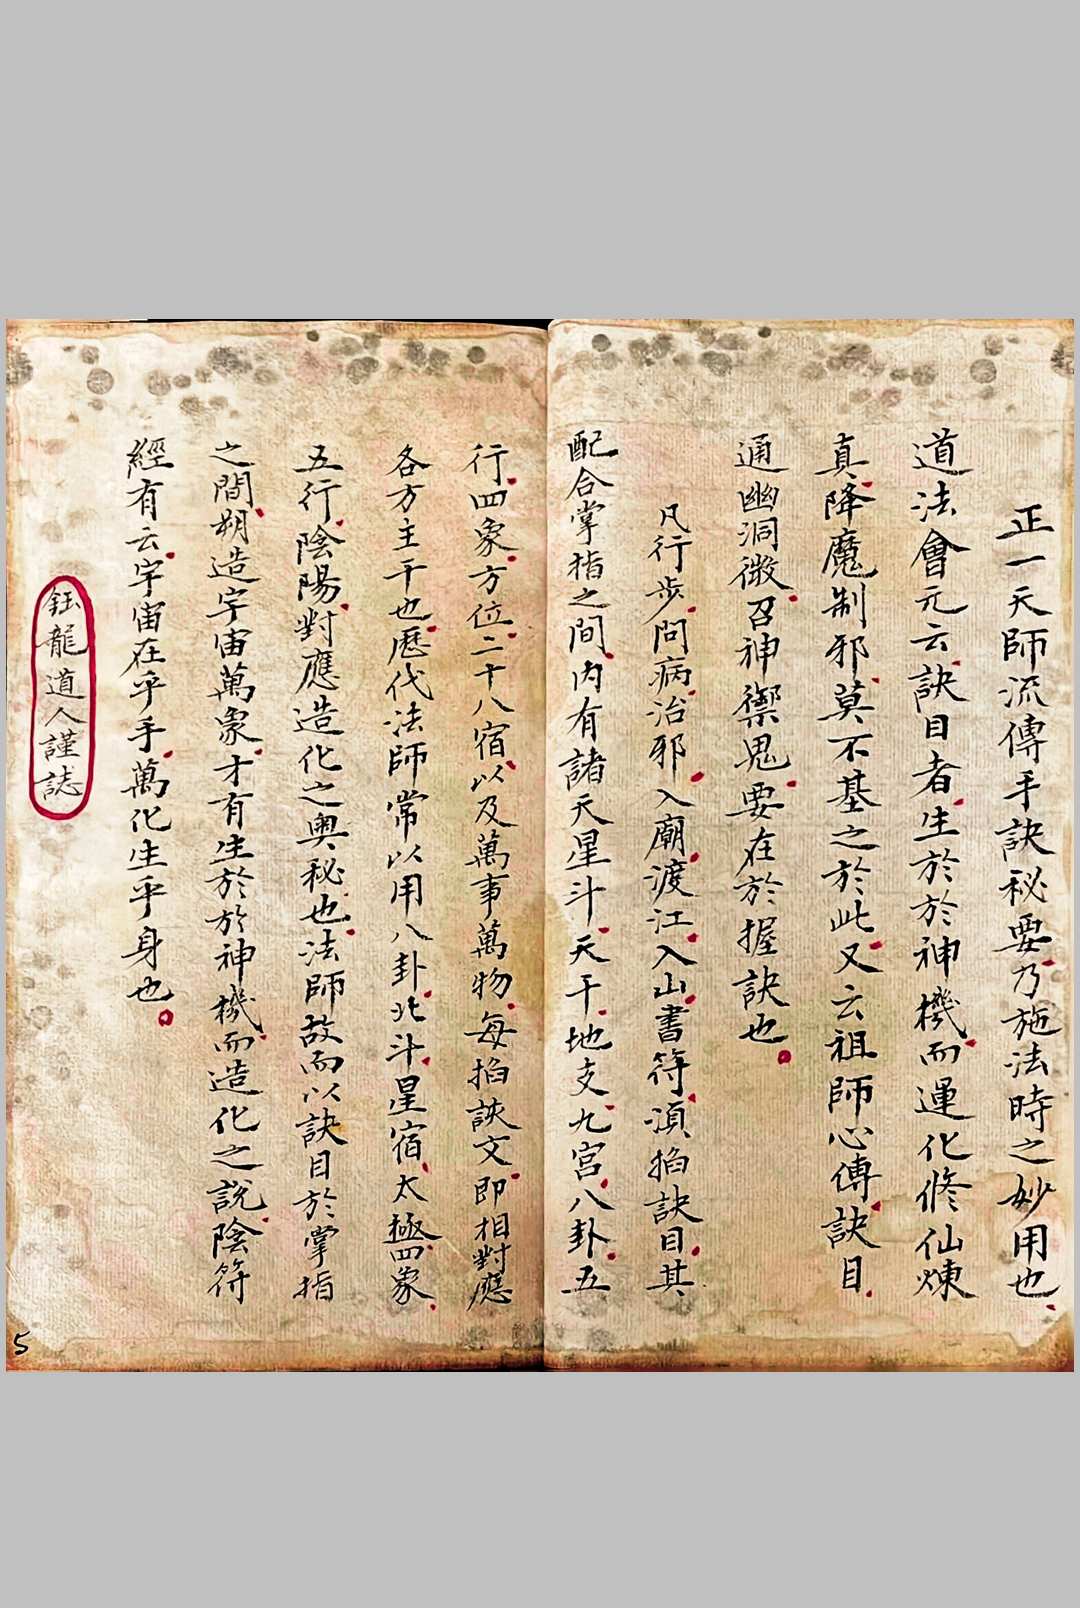 正一天師流傳手訣秘要乃施法時之妙用也
道法會元云訣目者生於於神機而運化修仙煉
真降魔制邪莫不基之於此又云祖師心傳訣目
通幽洞微召神禦鬼要在於握訣也
凡行步問病治邪入廟渡江入山書符須掐訣目其
配合掌指之間内有諸天星斗天干地支九宮八卦五
行四象方位二十八宿以及萬事萬物每掐訣文即相對應
各方主干也歷代法師常以用八卦北斗星宿太極四象
五行陰陽對應造化之奧秘也法師故而以訣目於掌指
之間朔造宇宙萬象才有生於於神機而造化之說陰符
經有云宇宙在乎手萬化生乎身也
鈺龍道人謹誌
5